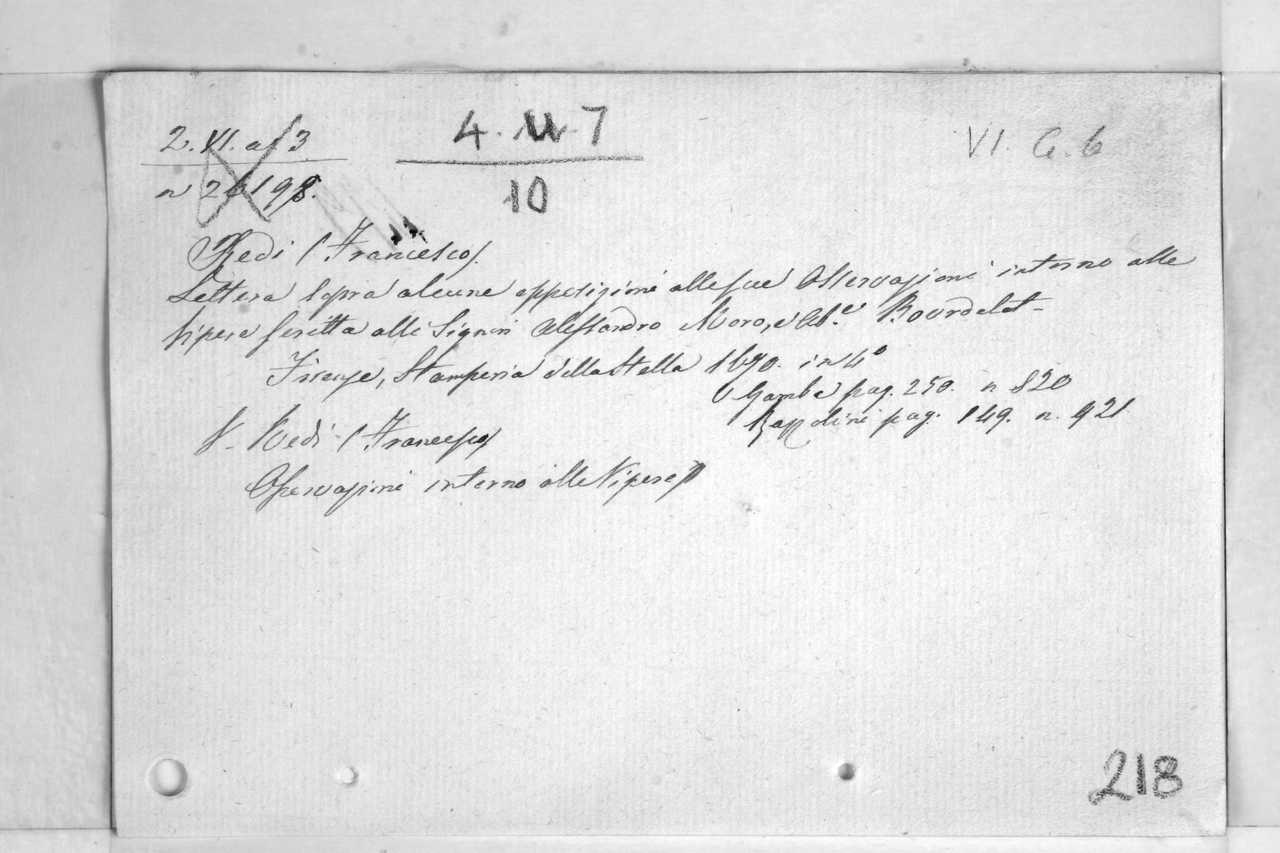 2. VI. a f 3
n 26198.
4. M. 7
10
VI. G. 6
Redi (Francesco).
Lettera sopra alcune opposizioni alle sue Osservazioni intorno alle
Vipere scritta alli Signori Alessandro Moro, e Ab.e Bourdelot -
Firenze, Stamperia della Stella 1670. in 4º
V. Gamba pag. 250. n 820
Razzolini pag. 149. n. 921
V- Redi (Francesco)
Osservazioni intorno alle Vipere
218